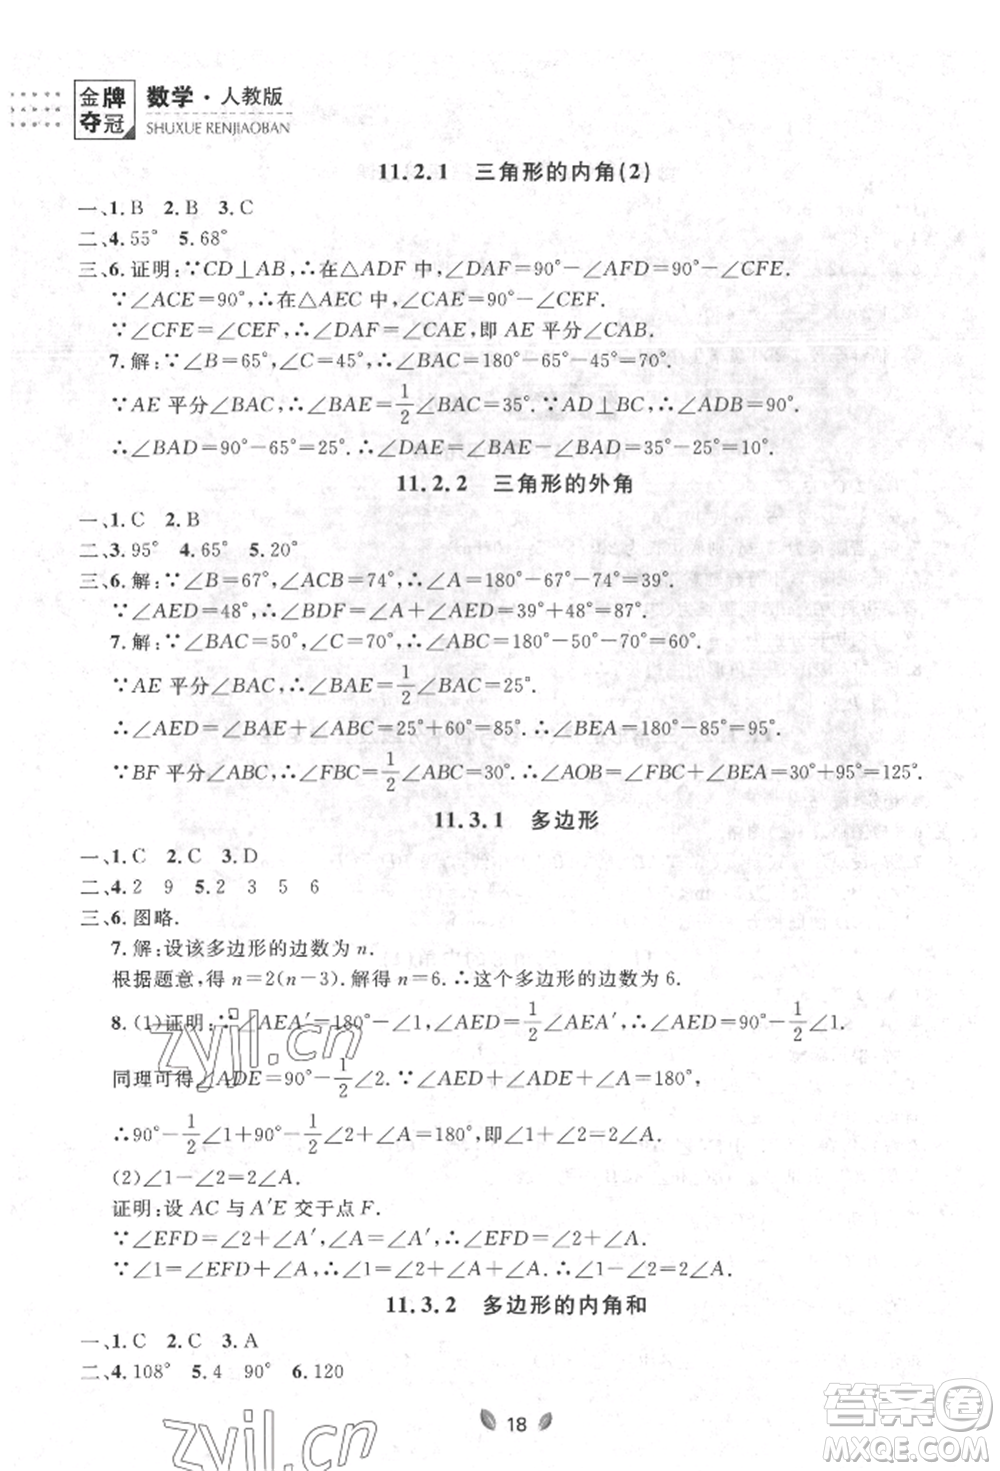 金牌夺冠
数学·人教版
SHUXUE RENJIAOBAN
11.2.1 三角形的内角(2)
一、1.B 2.B 3.C
二、4.55° 5.68°
三、6.证明:∵CD⊥AB,∴在△ADF中,∠DAF=90°-∠AFD=90°-∠CFE.
∵∠ACE=90°,∴在△AEC中,∠CAE=90°-∠CEF.
∵∠CFE=∠CEF,∴∠DAF=∠CAE,即AE平分∠CAB.
7.解:∵∠B=65°,∠C=45°,∴∠BAC=180°-65°-45°=70°.
∵AE平分∠BAC,∴∠BAE=1/2∠BAC=35°.∵AD⊥BC,∴∠ADB=90°.
∴∠BAD=90°-65°=25°.∴∠DAE=∠BAE-∠BAD=35°-25°=10°.
11.2.2 三角形的外角
一、1.C 2.B
二、3.95° 4.65° 5.20°
三、6.解:∵∠B=67°,∠ACB=74°,∴∠A=180°-67°-74°=39°.
∵∠AED=48°,∴∠BDF=∠A+∠AED=39°+48°=87°.
7.解:∵∠BAC=50°,∠C=70°,∴∠ABC=180°-50°-70°=60°.
∵AE平分∠BAC,∴∠BAE=1/2∠BAC=25°.
∴∠AED=∠BAE+∠ABC=25°+60°=85°.∴∠BEA=180°-85°=95°.
∵BF平分∠ABC,∴∠FBC=1/2∠ABC=30°.∴∠AOB=∠FBC+∠BEA=30°+95°=125°.
11.3.1 多边形
一、1.C 2.C 3.D
二、4.2 9 5.2 3 5 6
三、6.图略.
7.解:设该多边形的边数为n.
根据题意,得n=2(n-3).解得n=6.∴这个多边形的边数为6.
8.(1)证明:∵∠AEA′=180°-∠1,∠AED=1/2∠AEA′,∴∠AED=90°-1/2∠1.
同理可得∠ADE=90°-1/2∠2.∵∠AED+∠ADE+∠A=180°,
∴90°-1/2∠1+90°-1/2∠2+∠A=180°,即∠1+∠2=2∠A.
(2)∠1-∠2=2∠A.
证明:设AC与A′E交于点F.
∵∠EFD=∠2+∠A′,∠A=∠A′,∴∠EFD=∠2+∠A.
∵∠1=∠EFD+∠A,∴∠1=∠2+∠A+∠A=∠2+2∠A.
11.3.2 多边形的内角和
一、1.C 2.C 3.A
二、4.108° 5.4 90° 6.120
18
zyjl.cn
zyjl.cn
答案卷
MXQE.COM